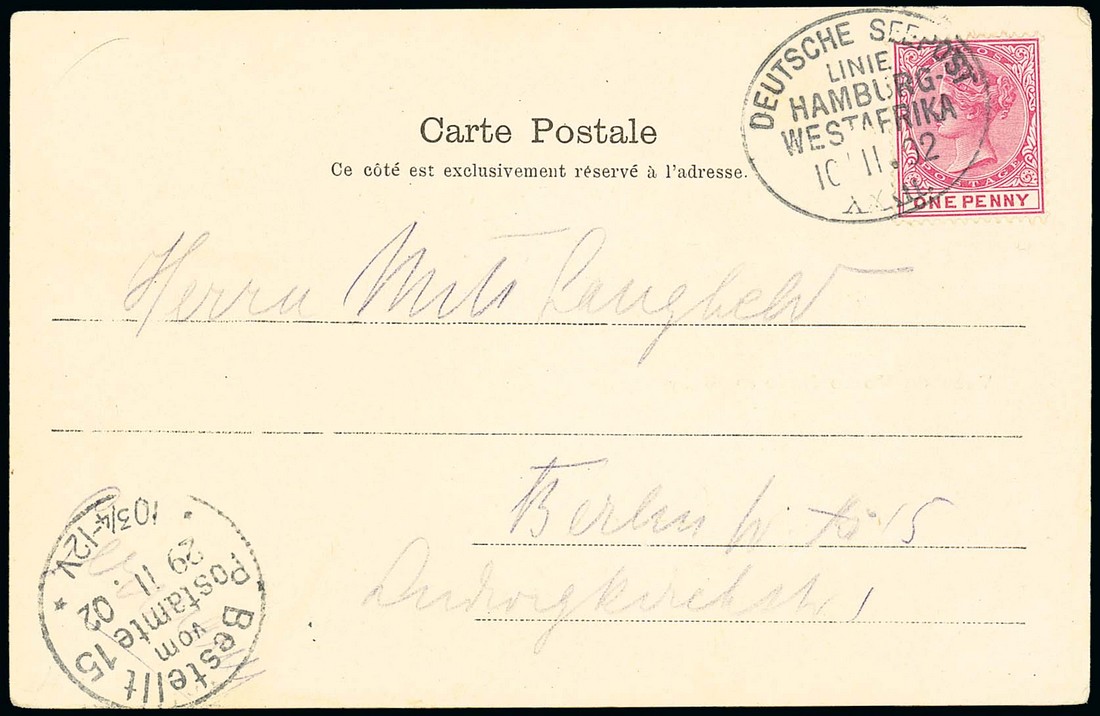 DEUTSCHE SEEPOST
LINIE
HAMBURG-
WESTAFRIKA
10 11.02
POSTAGE
ONE PENNY
Carte Postale
Ce côté est exclusivement réservé à l'adresse.
Herrn Langheld
Berlin 15
Ludwigkirchstr 1
Bestellt
vom
Postamte 15
29 11. 02
10 3/4-12V.